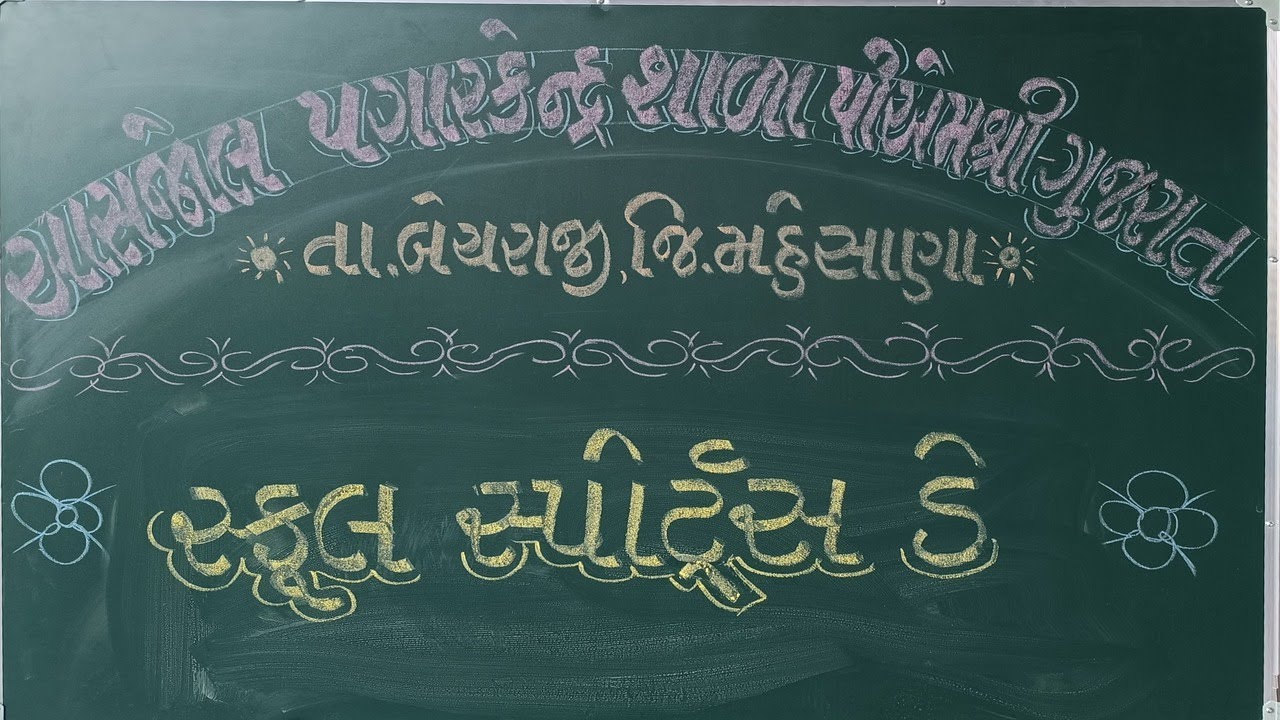 આસજોલ પગારકેન્દ્ર શાળા પીએમશ્રી-ગુજરાત
તા.બેચરાજી,જિ.મહેસાણા
સ્કૂલ સ્પોર્ટ્સ ડે